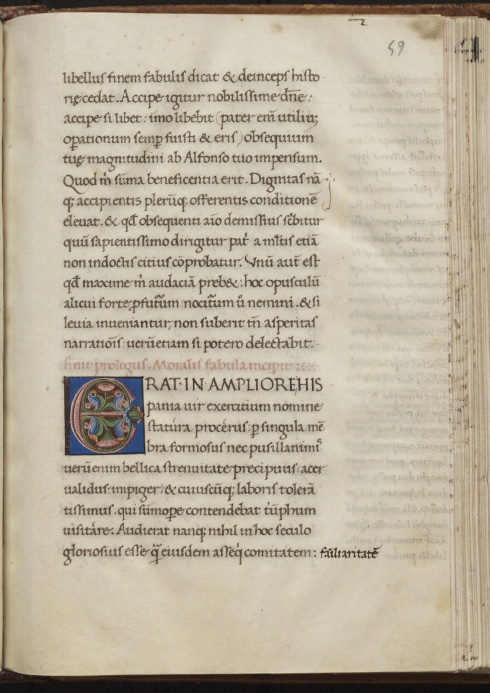 59
libellus finem fabulis dicat & deinceps histo
rię cedat. Accipe igitur nobilissime dn̄e:
accipe si libet: imo libebit (pater em̄ utiliũ
oꝑationum semꝑ fuisti & eris) obsequium
tuę magnitudini ab Alfonso tuo impensum.
Quod m̄ sũma beneficentia erit. Dignitas nã
qꝫ accipientis plerũqꝫ offerentis conditionē
eleuat. & qđ obsequenti aĩo demissius scribitur
quũ sapientissimo dirigitur patr̄ a ml̄tis etiã
non indoctis citius cõprobatur. Vnũ aut̄ est
qđ maxime m̄ audaciã prebet: hoc opusculũ
alicui forte ꝓfuturum nociturũ ũ nemini. & si
leuia inueniantur, non suberit tn̄ asperitas
narratiõis: uerũetiam si potero delectabit.
finit prologus. Moralis fabula incipit
ERAT IN AMPLIORE HIS
pania uir exercitium nomine
statura procerus ꝑ singula mē
bra formosus nec pusillanimis
uerũenim bellica strenuitate precipuus: acer
ualidus: impiger: & cuiuscũqꝫ laboris tolerã
tissimus. qui sũmoꝑe contendebat triũphum
uisitare. Audierat nanqꝫ nihil in hoc seculo
gloriosius esse q̃ eiusdem asseq̇ comitatem: familiaritatē